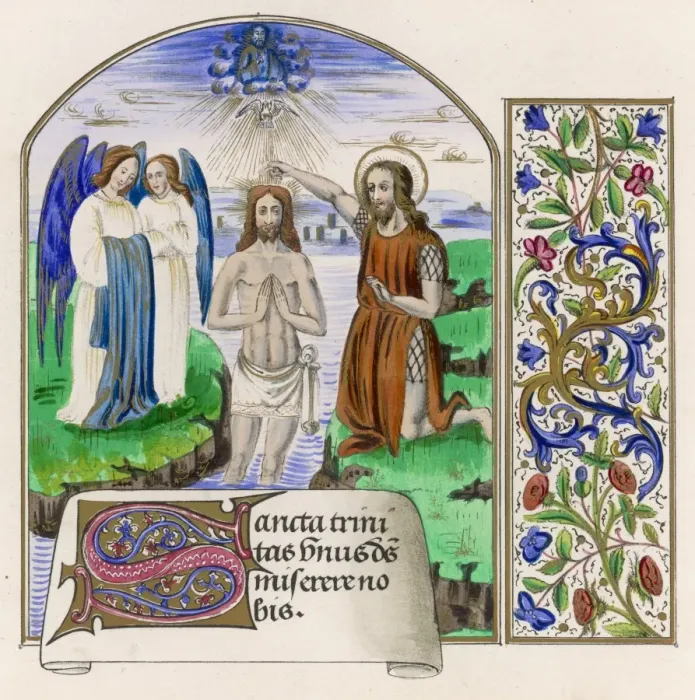 Sancta trini
tas vnus ds̄
miſerere no
bis.